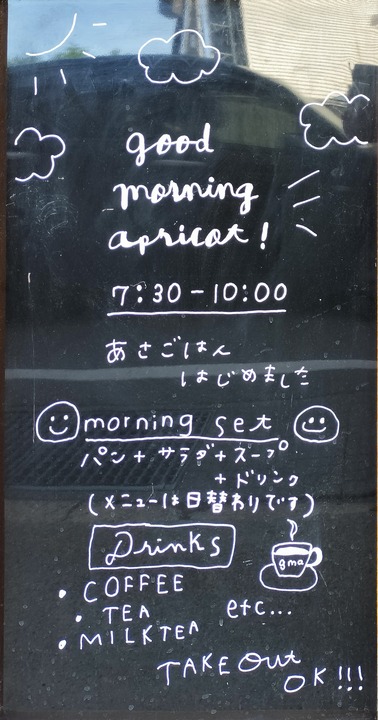 good
morning
apricot!
7:30-10:00
あさごはん
はじめました
morning set
パン+サラダ+スープ
+ドリンク
(メニューは日替わりです)
Drinks
gma
• COFFEE
• TEA
etc...
• MILKTEA
TAKE Out
OK!!!